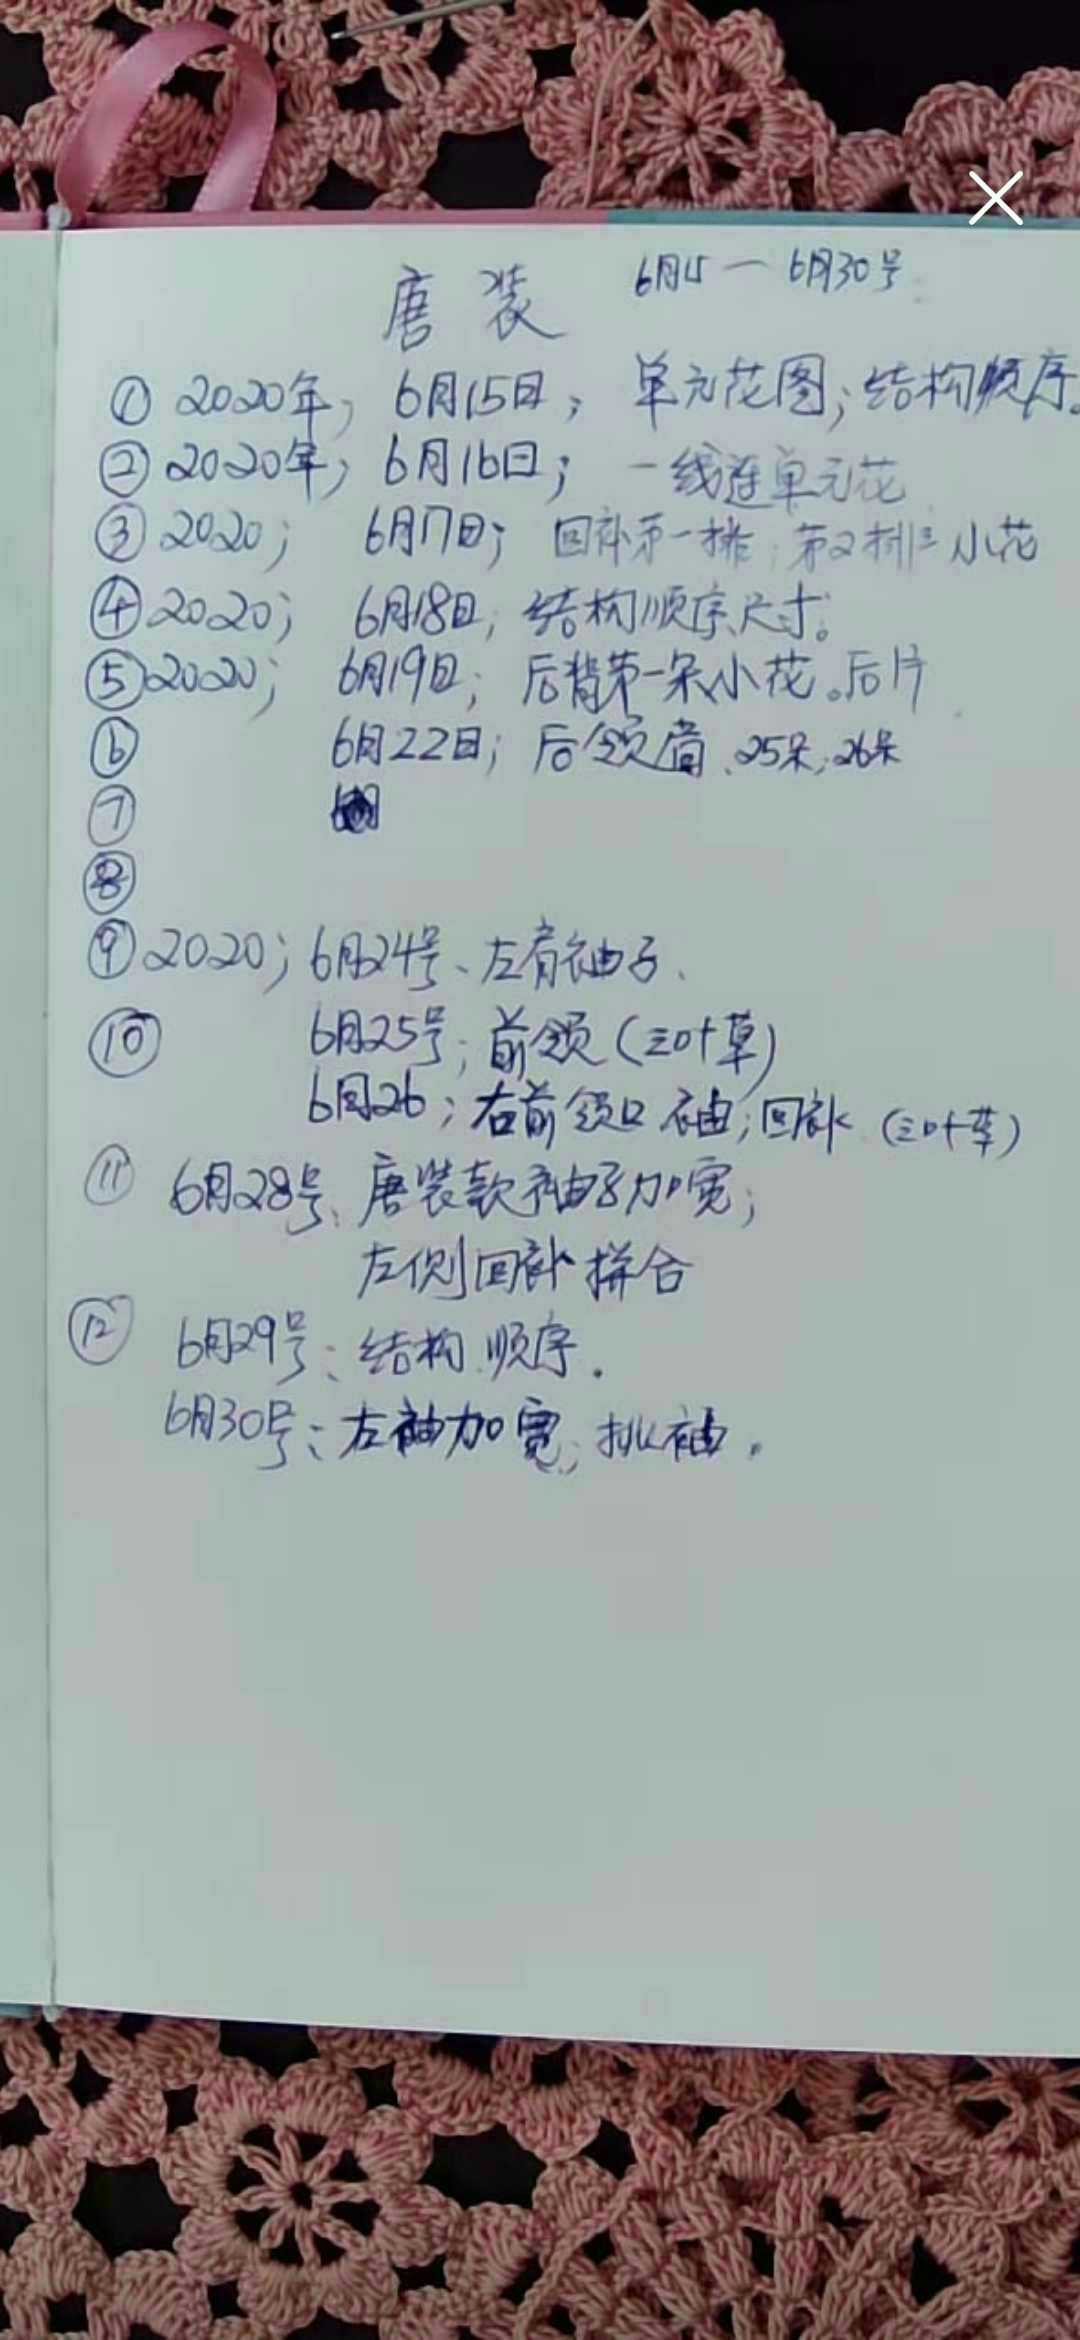 唐装 6月15—6月30号
① 2020年; 6月15日; 单元花图; 结构顺序。
② 2020年; 6月16日; 一线连单元花
③ 2020; 6月17日; 回补第一排; 第2排 小花
④ 2020; 6月18日; 结构顺序尺寸。
⑤ 2020; 6月19日; 后背第一朵小花。后片
⑥ 6月22日; 后领肩、25朵; 26朵
⑦
⑧
⑨ 2020; 6月24号、左肩袖子、
⑩ 6月25号; 前领(三叶草)
6月26; 右前领口袖; 回补(三叶草)
⑪ 6月28号、唐装款袖子加宽;
左侧回补拼合
⑫ 6月29号: 结构顺序.
6月30号: 左袖加宽; 挑袖.